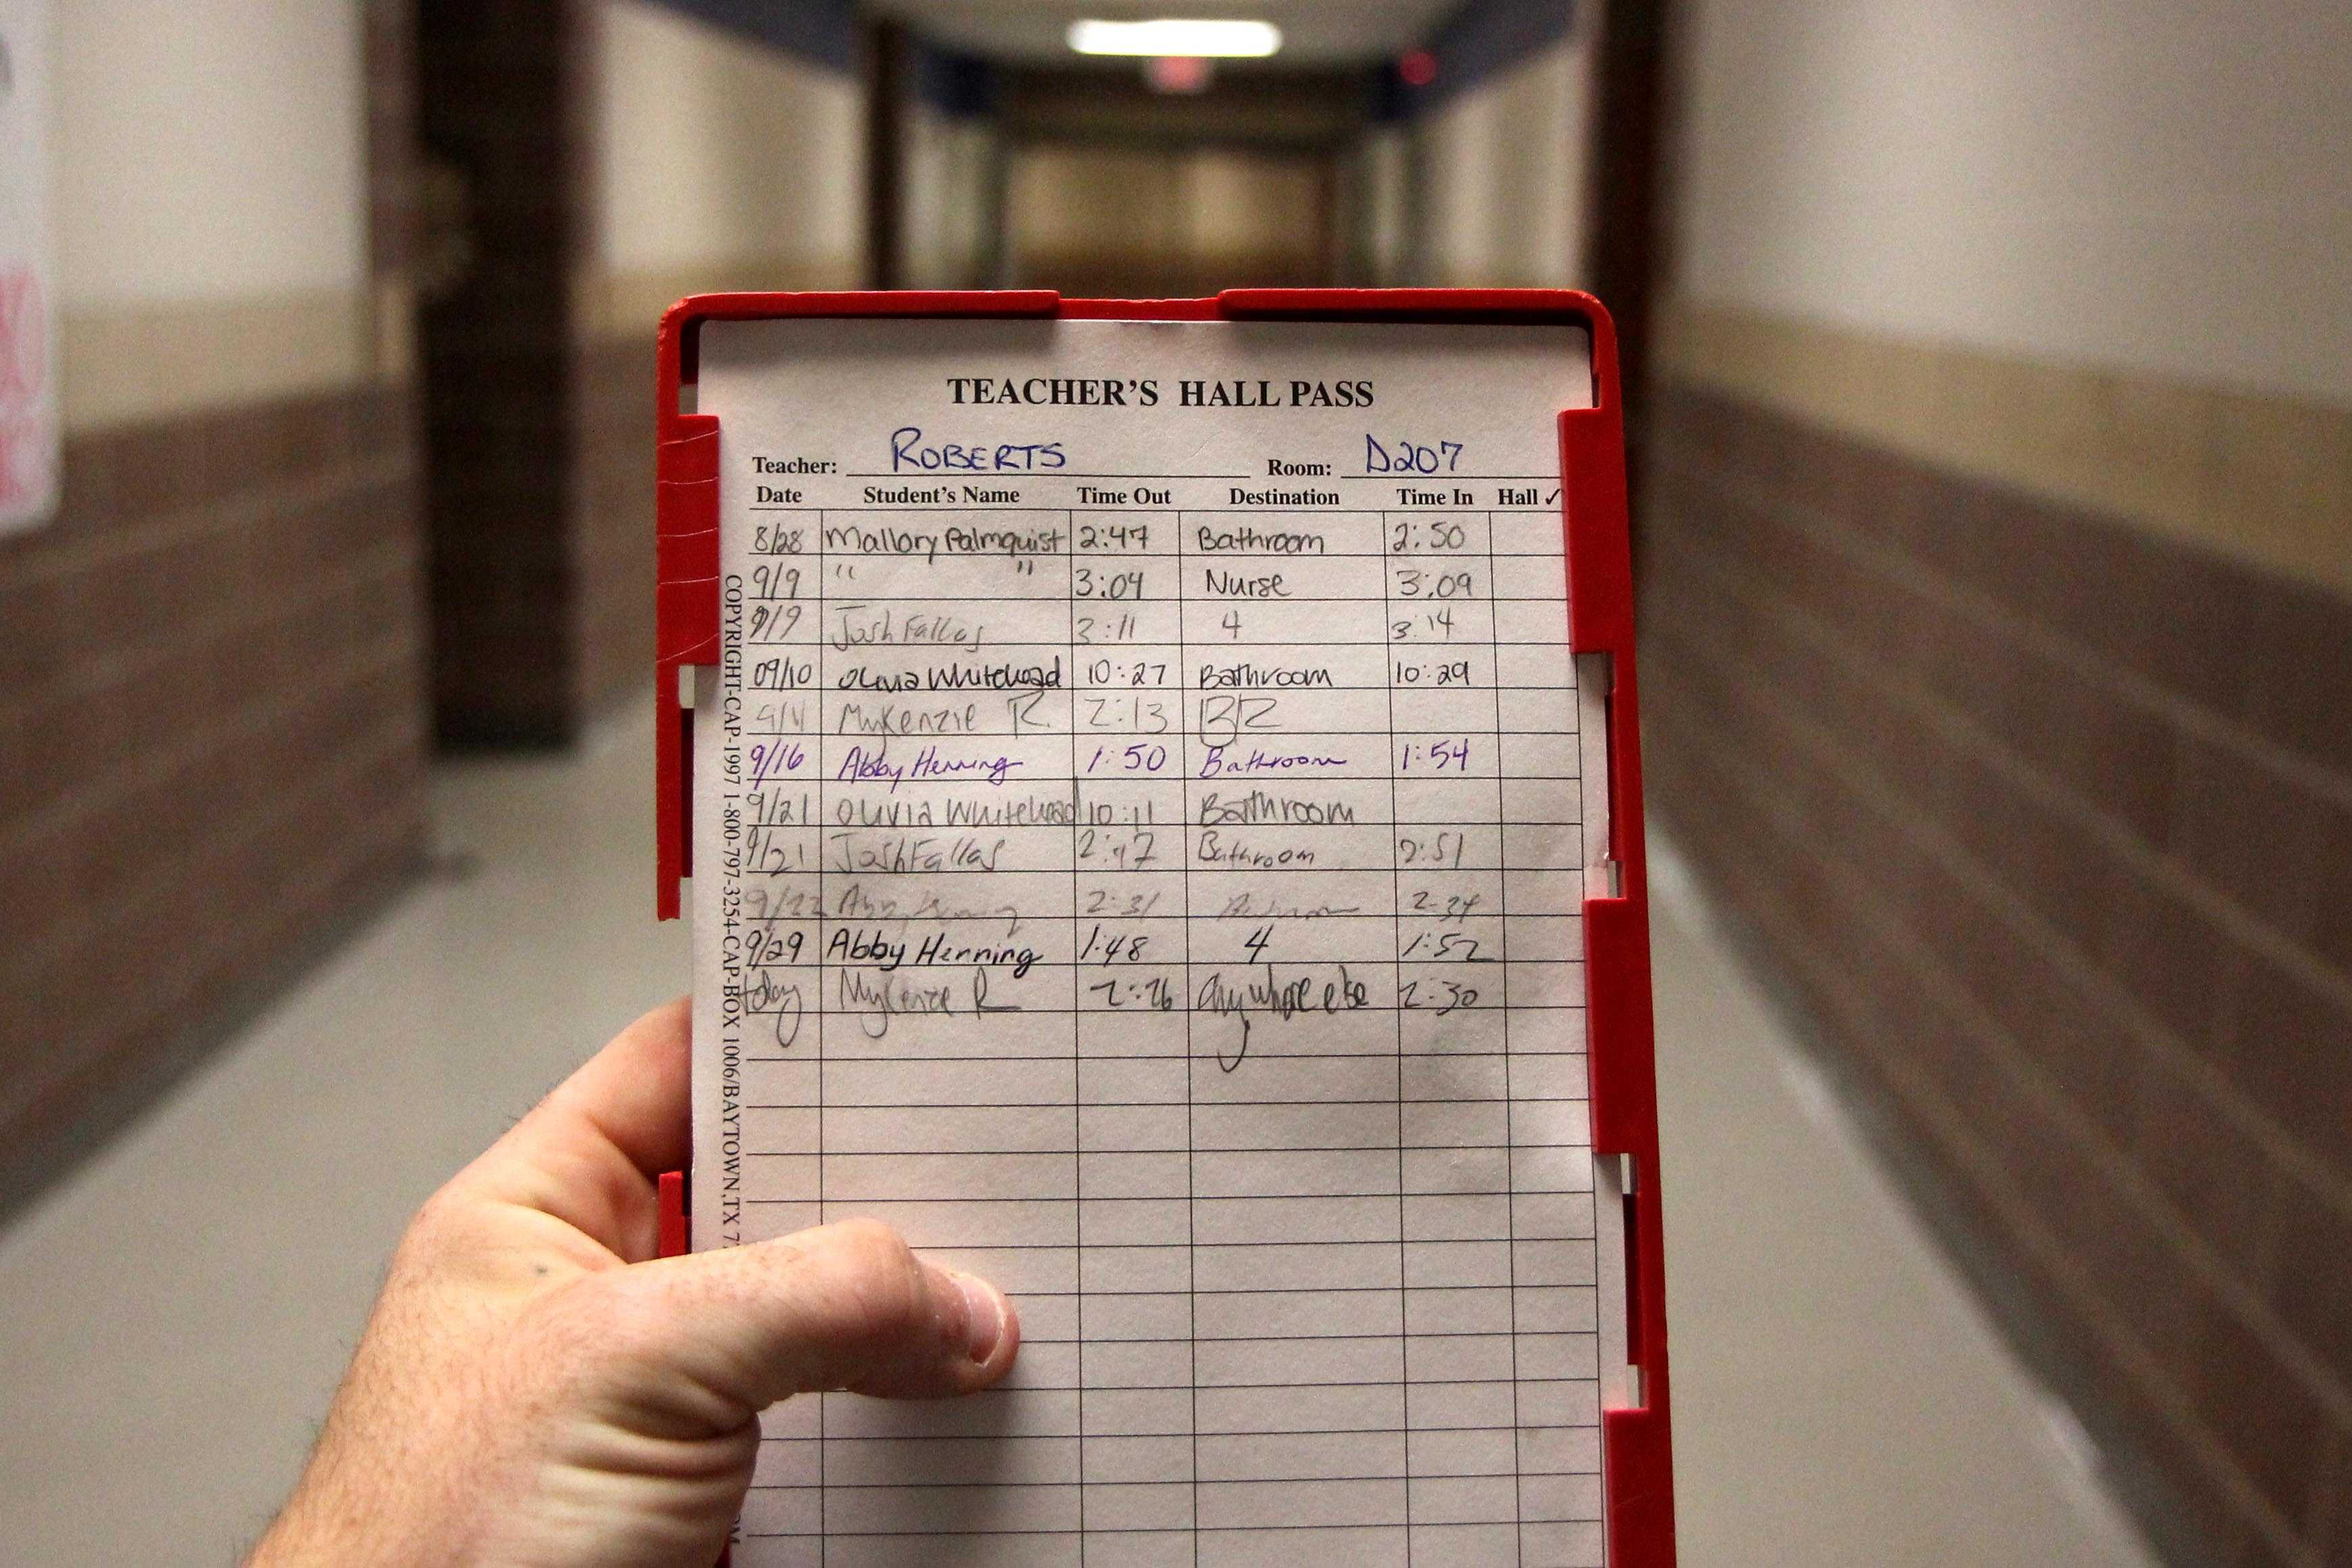 TEACHER'S HALL PASS
Teacher: ROBERTS Room: D207
Date Student's Name Time Out Destination Time In Hall ✓
8/28 Mallory Palmquist 2:47 Bathroom 2:50
9/9 " " 3:04 Nurse 3:09
9/9 Josh Fallas 3:11 4 3:14
09/10 Olivia Whitehead 10:27 Bathroom 10:29
MyKenzie R. 2:13 BR
9/16 Abby Henning 1:50 Bathroom 1:54
9/21 Olivia Whitehead 10:11 Bathroom
9/21 Josh Fallas 2:47 Bathroom 2:51
9/22 2:31 2:34
9/29 Abby Henning 1:48 4 1:52
today MyKenzie R 2:26 Anywhere else 2:30
COPYRIGHT-CAP-1997 1-800-797-3254-CAP-BOX 1006/BAYTOWN,TX